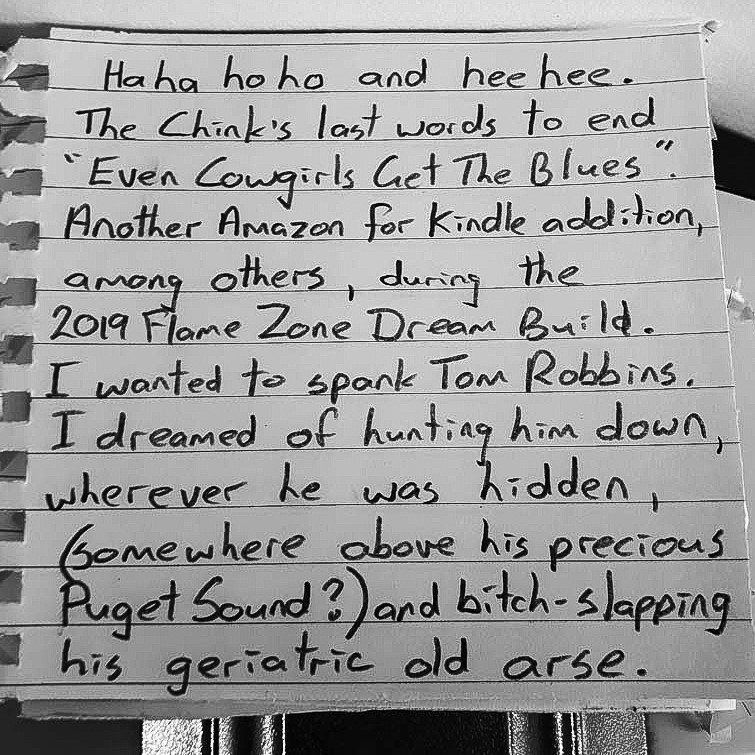 Haha hoho and heehee.
The Chink's last words to end
"Even Cowgirls Get The Blues".
Another Amazon for Kindle addition,
among others, during the
2019 Flame Zone Dream Build.
I wanted to spank Tom Robbins.
I dreamed of hunting him down,
wherever he was hidden,
(somewhere above his precious
Puget Sound?) and bitch-slapping
his geriatric old arse.